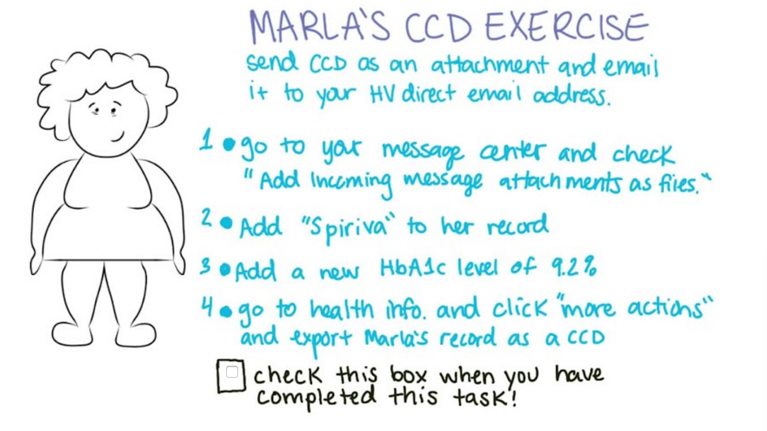 MARLA'S CCD EXERCISE
send CCD as an attachment and email
it to your HV direct email address.
1 • go to your message center and check
"Add Incoming message attachments as files."
2 • Add "Spiriva" to her record
3 • Add a new HbA1c level of 9.2%
4 • go to health info. and click "more actions"
and export Marla's record as a CCD
check this box when you have
completed this task!